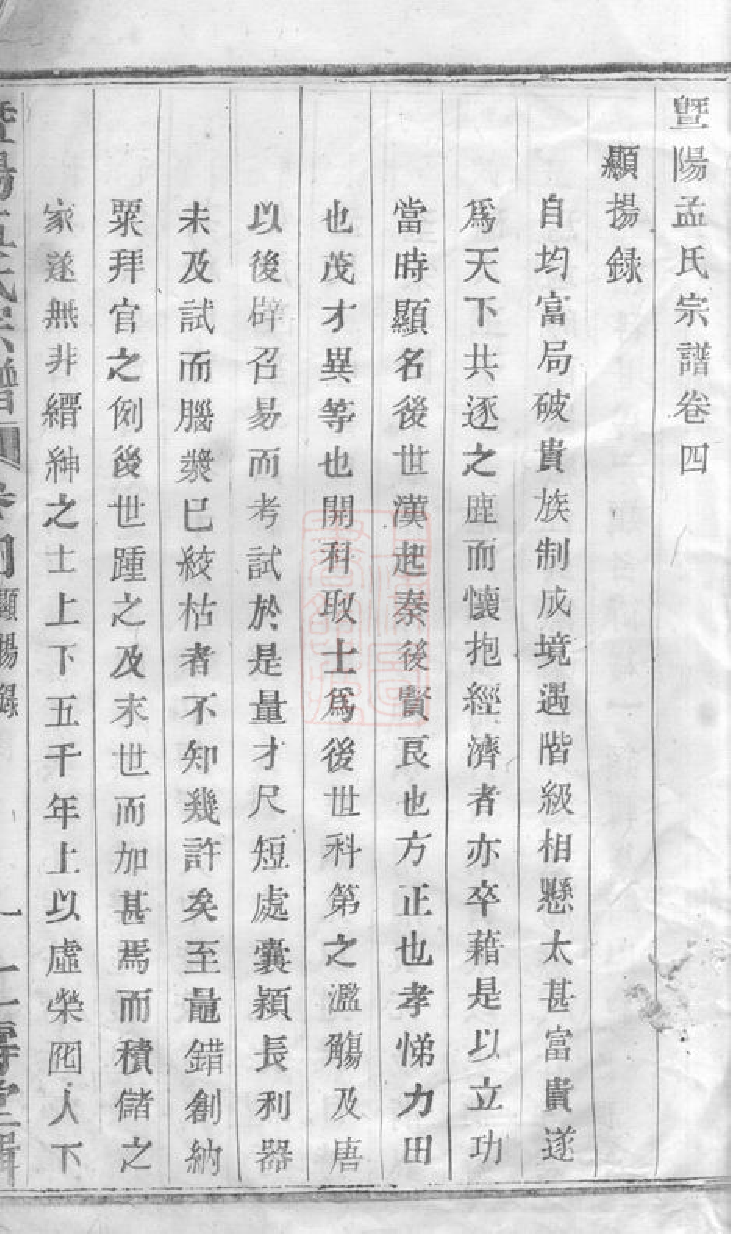 暨陽孟氏宗譜卷四
顯揚録
自均富局破貴族制成境遇階級相懸太甚富貴遂
爲天下共逐之鹿而懷抱經濟者亦卒藉是以立功
當時顯名後世漢起秦後賢良也方正也孝悌力田
也茂才異等也開科取士爲後世科第之濫觴及唐
以後辟召易而考試於是量才尺短處囊穎長利器
未及試而腦漿已絞枯者不知幾許矣至鼂錯創納
粟拜官之例後世踵之及末世而加甚焉而積儲之
家遂無非縉紳之士上下五千年上以虛榮囮人下
暨陽孟氏宗譜 卷四 顯揚錄 一